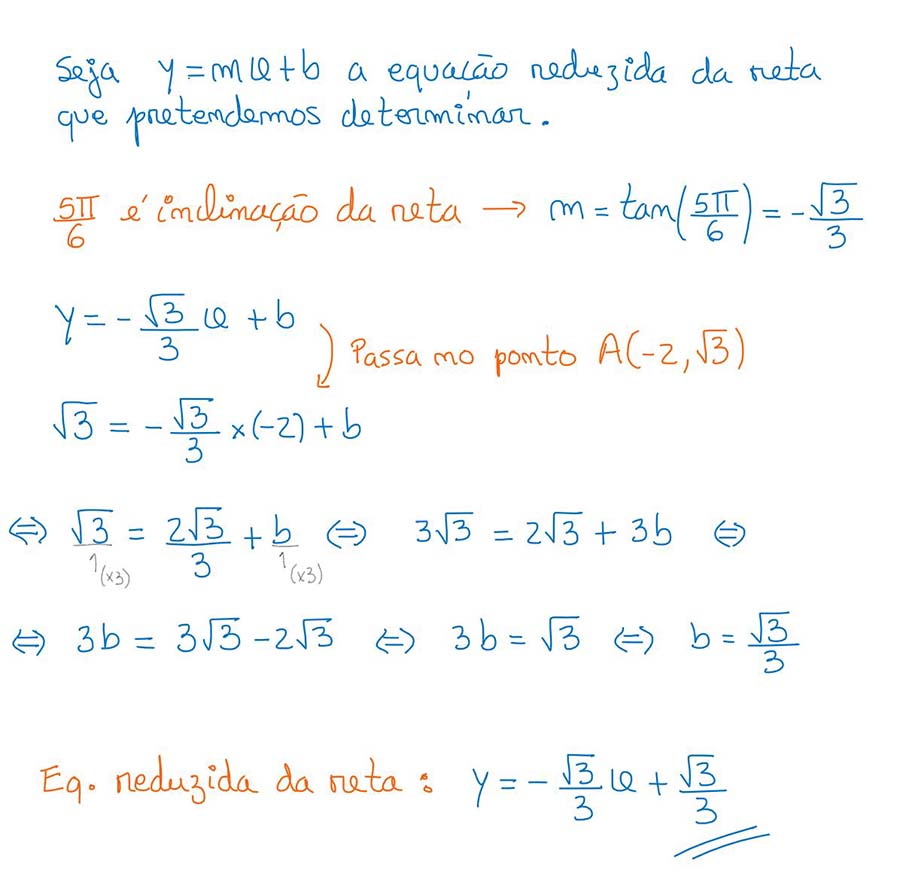 Seja y = mx + b a equação reduzida da reta
que pretendemos determinar.
5π/6 é inclinação da reta → m = tan(5π/6) = -√3/3
y = -√3/3 x + b
Passa no ponto A(-2, √3)
√3 = -√3/3 × (-2) + b
⇔ √3/1 (×3) = 2√3/3 + b/1 (×3) ⇔ 3√3 = 2√3 + 3b ⇔
⇔ 3b = 3√3 - 2√3 ⇔ 3b = √3 ⇔ b = √3/3
Eq. reduzida da reta : y = -√3/3 x + √3/3